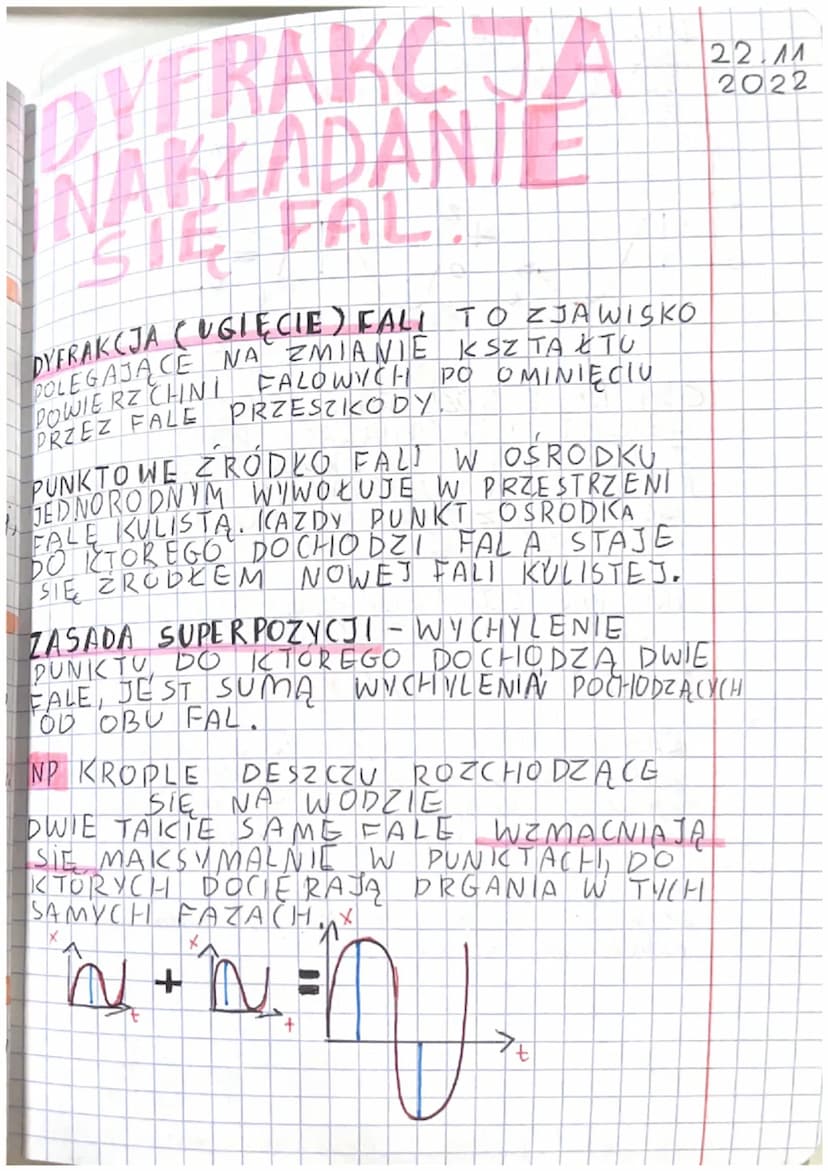 DYFRAKCJA
NAKŁADANIE
SIĘ FAL.
22.11
2022
DYFRAKCJA (UGIĘCIE) FALI TO ZJAWISKO
POLEGAJĄCE NA ZMIANIE KSZTAŁTU
POWIERZCHNI FALOWYCH PO OMINIĘCIU
PRZEZ FALE PRZESZKODY.
PUNKTOWE ŹRÓDŁO FALI W OŚRODKU
JEDNORODNYM WYWOŁUJE W PRZESTRZENI
FALĘ KULISTĄ. KAŻDY PUNKT OŚRODKA
DO KTÓREGO DOCHODZI FALA STAJE
SIĘ ŹRÓDŁEM NOWEJ FALI KULISTEJ.
ZASADA SUPERPOZYCJI - WYCHYLENIE
PUNKTU, DO KTÓREGO DOCHODZĄ DWIE
FALE, JEST SUMĄ WYCHYLENIA POCHODZĄCYCH
OD OBU FAL.
NP KROPLE DESZCZU ROZCHODZĄCE
SIĘ NA WODZIE
DWIE TAKIE SAME FALE WZMACNIAJĄ
SIĘ MAKSYMALNIE W PUNKTACH, DO
KTÓRYCH DOCIERAJĄ DRGANIA W TYCH
SAMYCH FAZACH.
x t + x t = x t